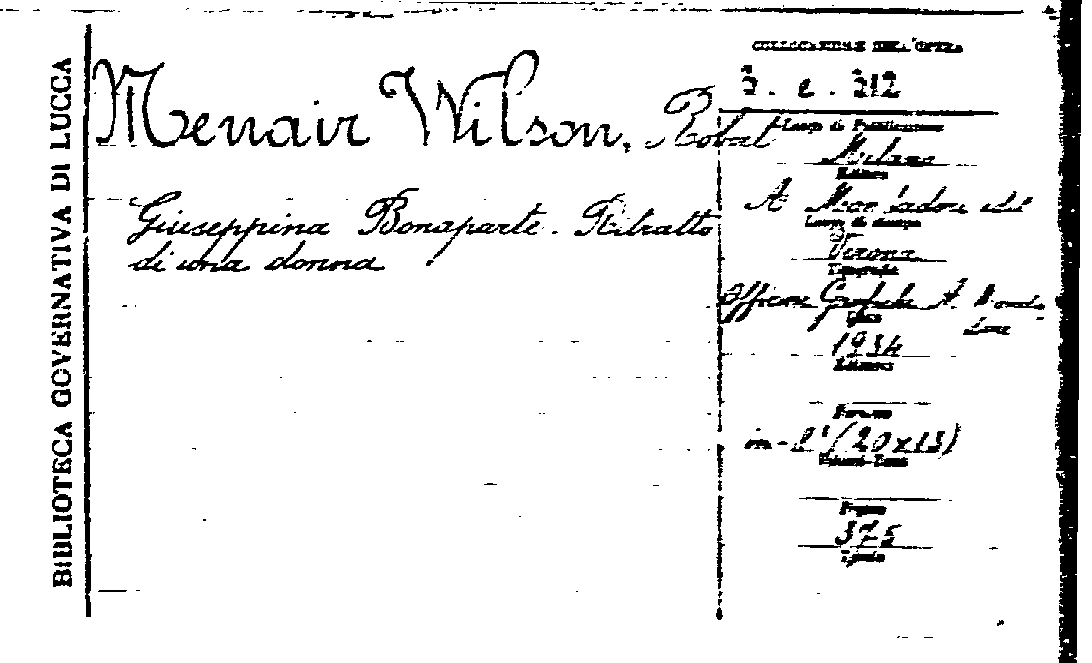 BIBLIOTECA GOVERNATIVA DI LUCCA
Menair Wilson, Robat
Giuseppina Bonaparte - Ritratto
di una donna
COLLOCAZIONE DELL'OPERA
2. e. 212
Luogo di Pubblicazione
Milano
Editore
A Mondadori
Luogo di stampa
Verona
Tipografia
Officine Grafiche A. Mondadori
1934
Edizione
Formato
in-8°(20x13)
Pagine
375